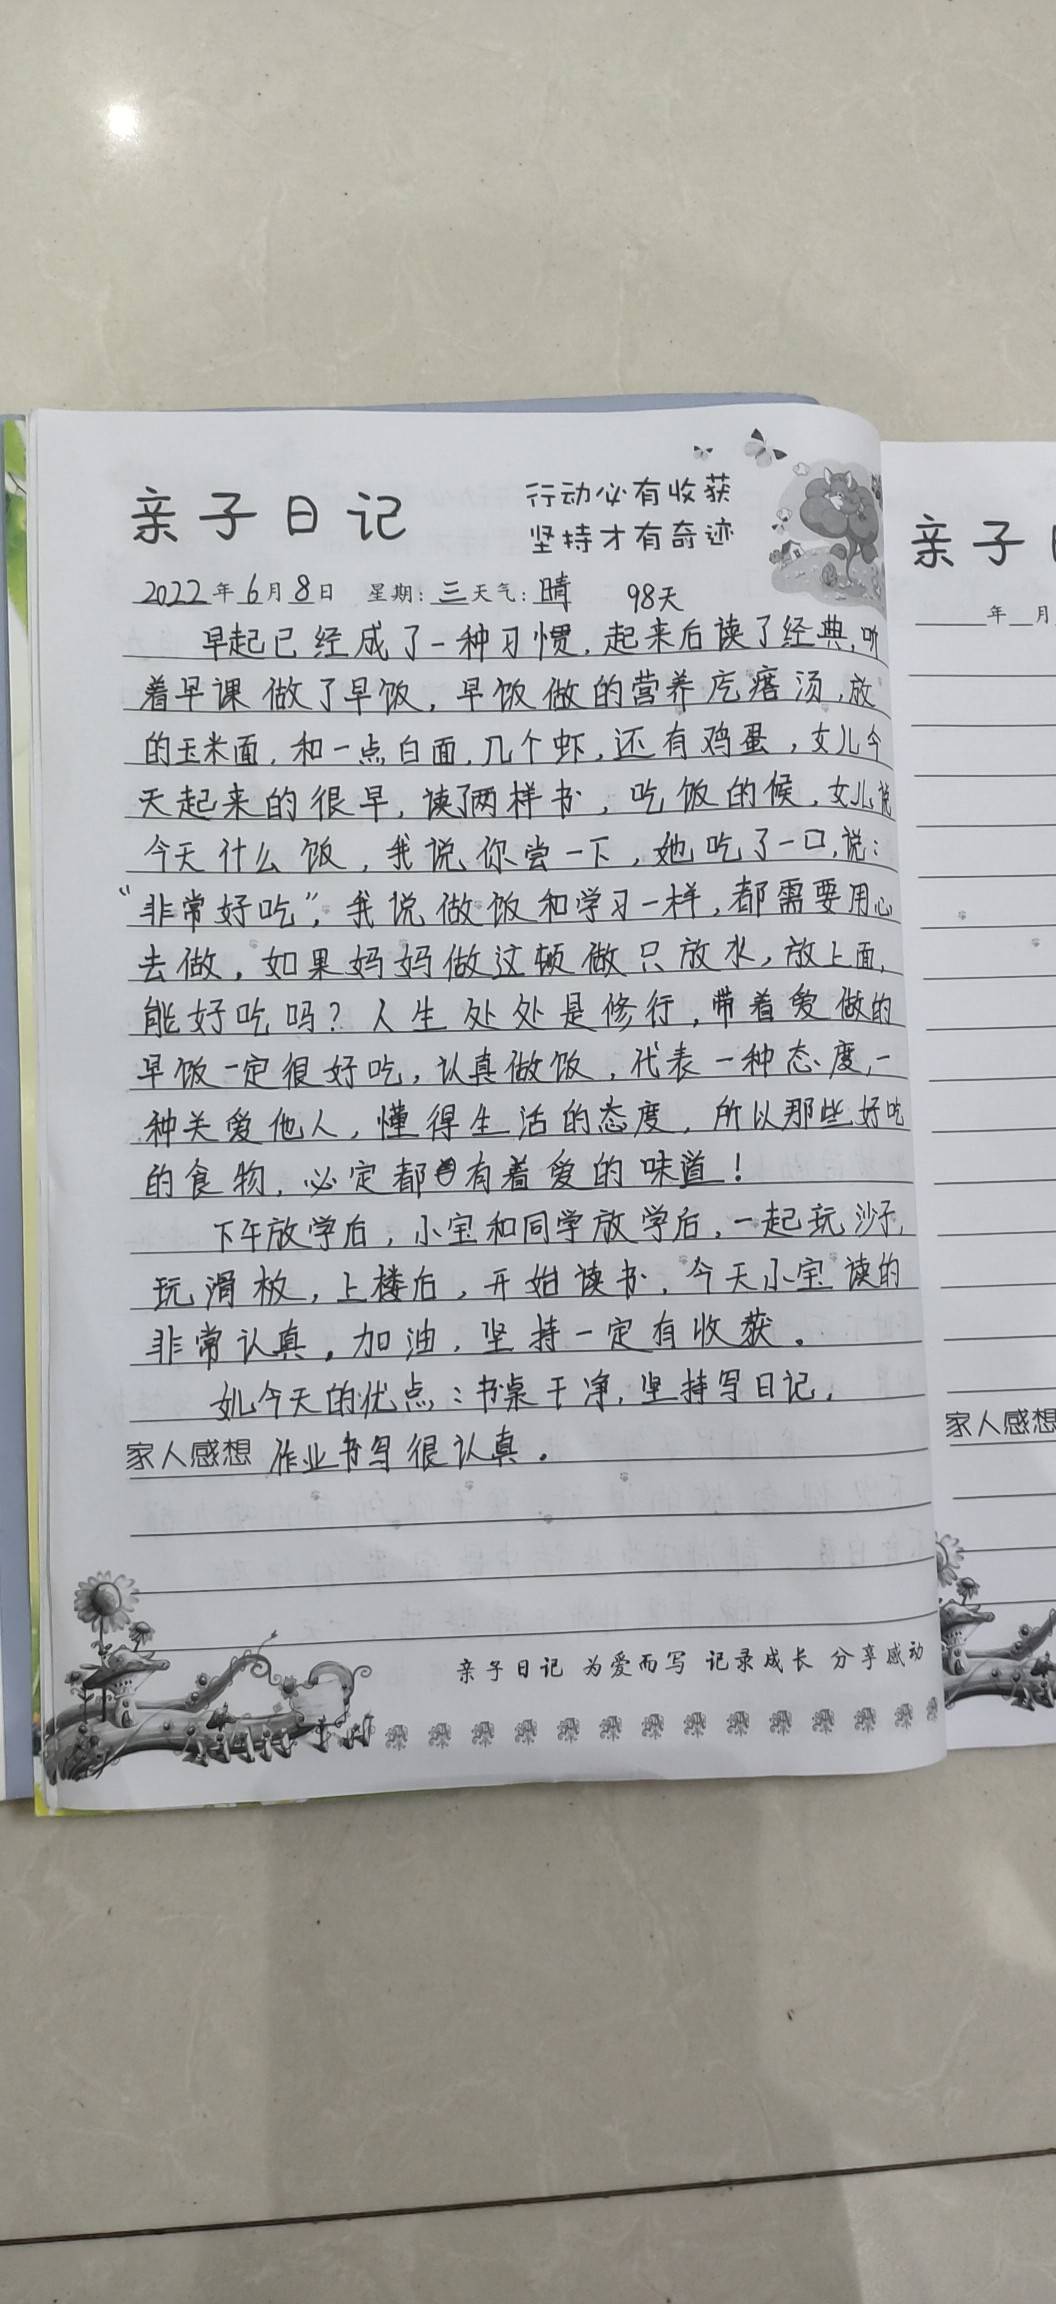 亲子日记
行动必有收获
坚持才有奇迹
2022年6月8日 星期:三天气:晴 98天
早起已经成了一种习惯,起来后读了经典,听
着早课做了早饭,早饭做的营养疙瘩汤,放
的玉米面,和一点白面,几个虾,还有鸡蛋,女儿今
天起来的很早,读了两样书,吃饭的候,女儿说
今天什么饭,我说你尝一下,她吃了一口,说:
“非常好吃”,我说做饭和学习一样,都需要用心
去做,如果妈妈做这顿做只放水,放上面,
能好吃吗?人生处处是修行,带着爱做的
早饭一定很好吃,认真做饭,代表一种态度,一
种关爱他人,懂得生活的态度,所以那些好吃
的食物,必定都有着爱的味道!
下午放学后,小宝和同学放学后,一起玩沙子,
玩滑板,上楼后,开始读书,今天小宝读的
非常认真,加油,坚持一定有收获。
今天的优点:书桌干净,坚持写日记,
家人感想 作业书写很认真。
亲子日记 为爱而写 记录成长 分享感动
亲子
年 月
家人感想